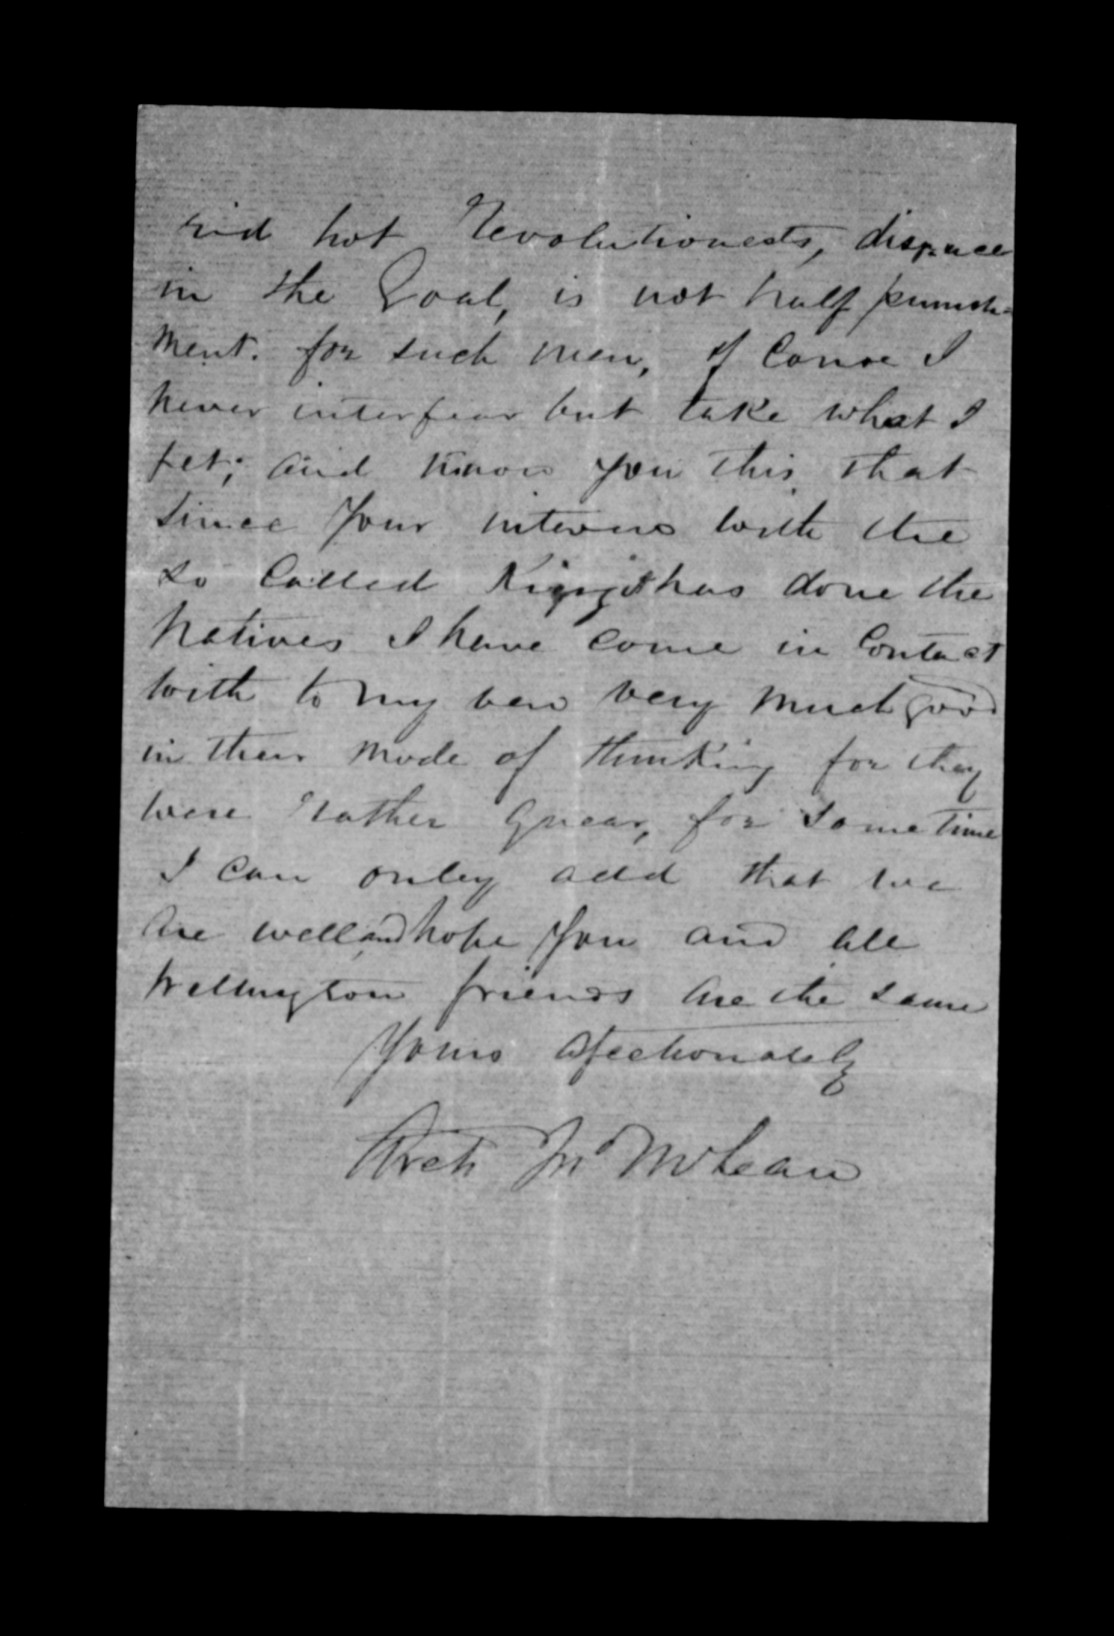 rid hot Revolutionests, disgrace
in the Goal, is not half punish-
ment. for such men, of Corse I
never interfear but take what I
get; and know you this that
since Your interveu with the
so Called King it has done the
Natives I have come in Contact
with to my veu very much good
in their mode of thinking for they
were rather Quear, for some time
I can onley add that we
are well and hope You and all
Wellington friends are the same
Yours afectionately
Arch Jn McLean